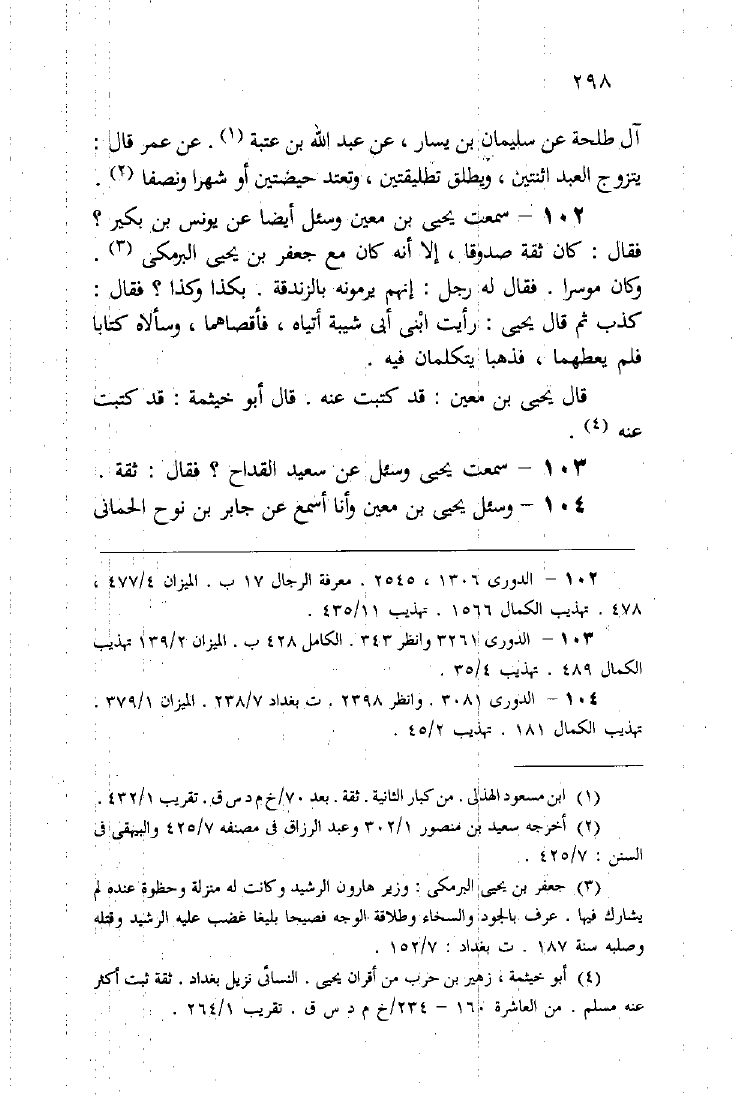 ٢٩٨
آل طلحة عن سليمان بن يسار ، عن عبد الله بن عتبة (١) . عن عمر قال :
يتزوج العبد اثنتين ، ويطلق تطليقتين ، وتعتد حيضتين أو شهرا ونصفا (٢) .
١٠٢ – سمعت يحيى بن معين وسئل أيضا عن يونس بن بكير ؟
فقال : كان ثقة صدوقا ، إلا أنه كان مع جعفر بن يحيى البرمكى (٣) .
وكان موسرا . فقال له رجل : إنهم يرمونه بالزندقة . بكذا وكذا ؟ فقال :
كذب ثم قال يحيى : رأيت ابْنى أبى شيبة أتياه ، فأقصاهما ، وسألاه كتابا
فلم يعطهما ، فذهبا يتكلمان فيه .
قال يحيى بن معين : قد كتبت عنه . قال أبو خيثمة : قد كتبت
عنه (٤) .
١٠٣ – سمعت يحيى وسئل عن سعيد القداح ؟ فقال : ثقة .
١٠٤ – وسئل يحيى بن معين وأنا أسمع عن جابر بن نوح الحمانى
١٠٢ – الدورى ١٣٠٦ ، ٢٥٤٥ . معرفة الرجال ١٧ ب . الميزان ٤٧٧/٤ ،
٤٧٨ . تهذيب الكمال ١٥٦٦ . تهذيب ٤٣٥/١١ .
١٠٣ – الدورى ٣٢٦١ وانظر ٣٤٣ . الكامل ٤٢٨ ب . الميزان ١٣٩/٢ تهذيب
الكمال ٤٨٩ . تهذيب ٣٥/٤ .
١٠٤ – الدورى ٣٠٨١ . وانظر ٢٣٩٨ . ت بغداد ٢٣٨/٧ . الميزان ٣٧٩/١ .
تهذيب الكمال ١٨١ . تهذيب ٤٥/٢ .
(١) ابن مسعود الهذلى . من كبار الثانية . ثقة . بعد ٧٠/خ م د س ق . تقريب ٤٣٢/١ .
(٢) أخرجه سعيد بن منصور ٣٠٢/١ وعبد الرزاق فى مصنفه ٤٢٥/٧ والبيهقى فى
السنن : ٤٢٥/٧ .
(٣) جعفر بن يحيى البرمكى : وزير هارون الرشيد وكانت له منزلة وحظوة عنده لم
يشارك فيها . عرف بالجود والسخاء وطلاقة الوجه فصيحا بليغا غضب عليه الرشيد وقتله
وصلبه سنة ١٨٧ . ت بغداد : ١٥٢/٧ .
(٤) أبو خيثمة ، زهير بن حرب من أقران يحيى . النسائى نزيل بغداد . ثقة ثبت أكثر
عنه مسلم . من العاشرة ١٦٠ – ٢٣٤/خ م د س ق . تقريب ٢٦٤/١ .